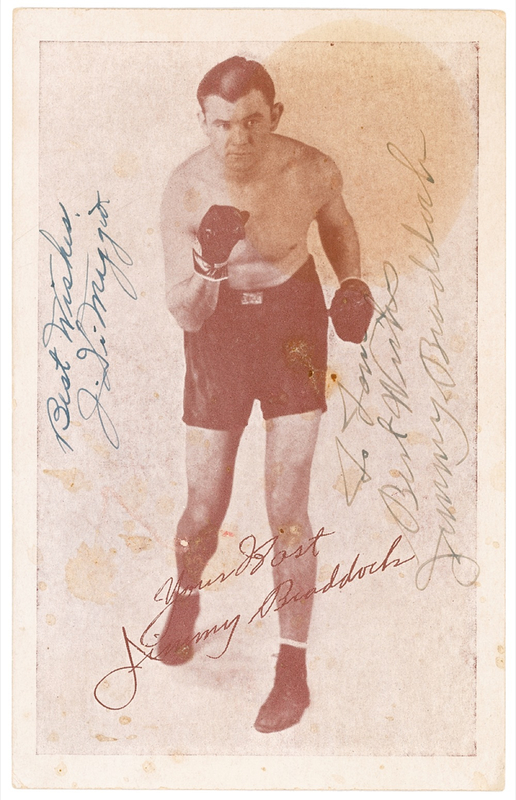 Best Wishes
J. Di Maggio
To
Best Wishes
Jimmy Braddock
Your Host
Jimmy Braddock